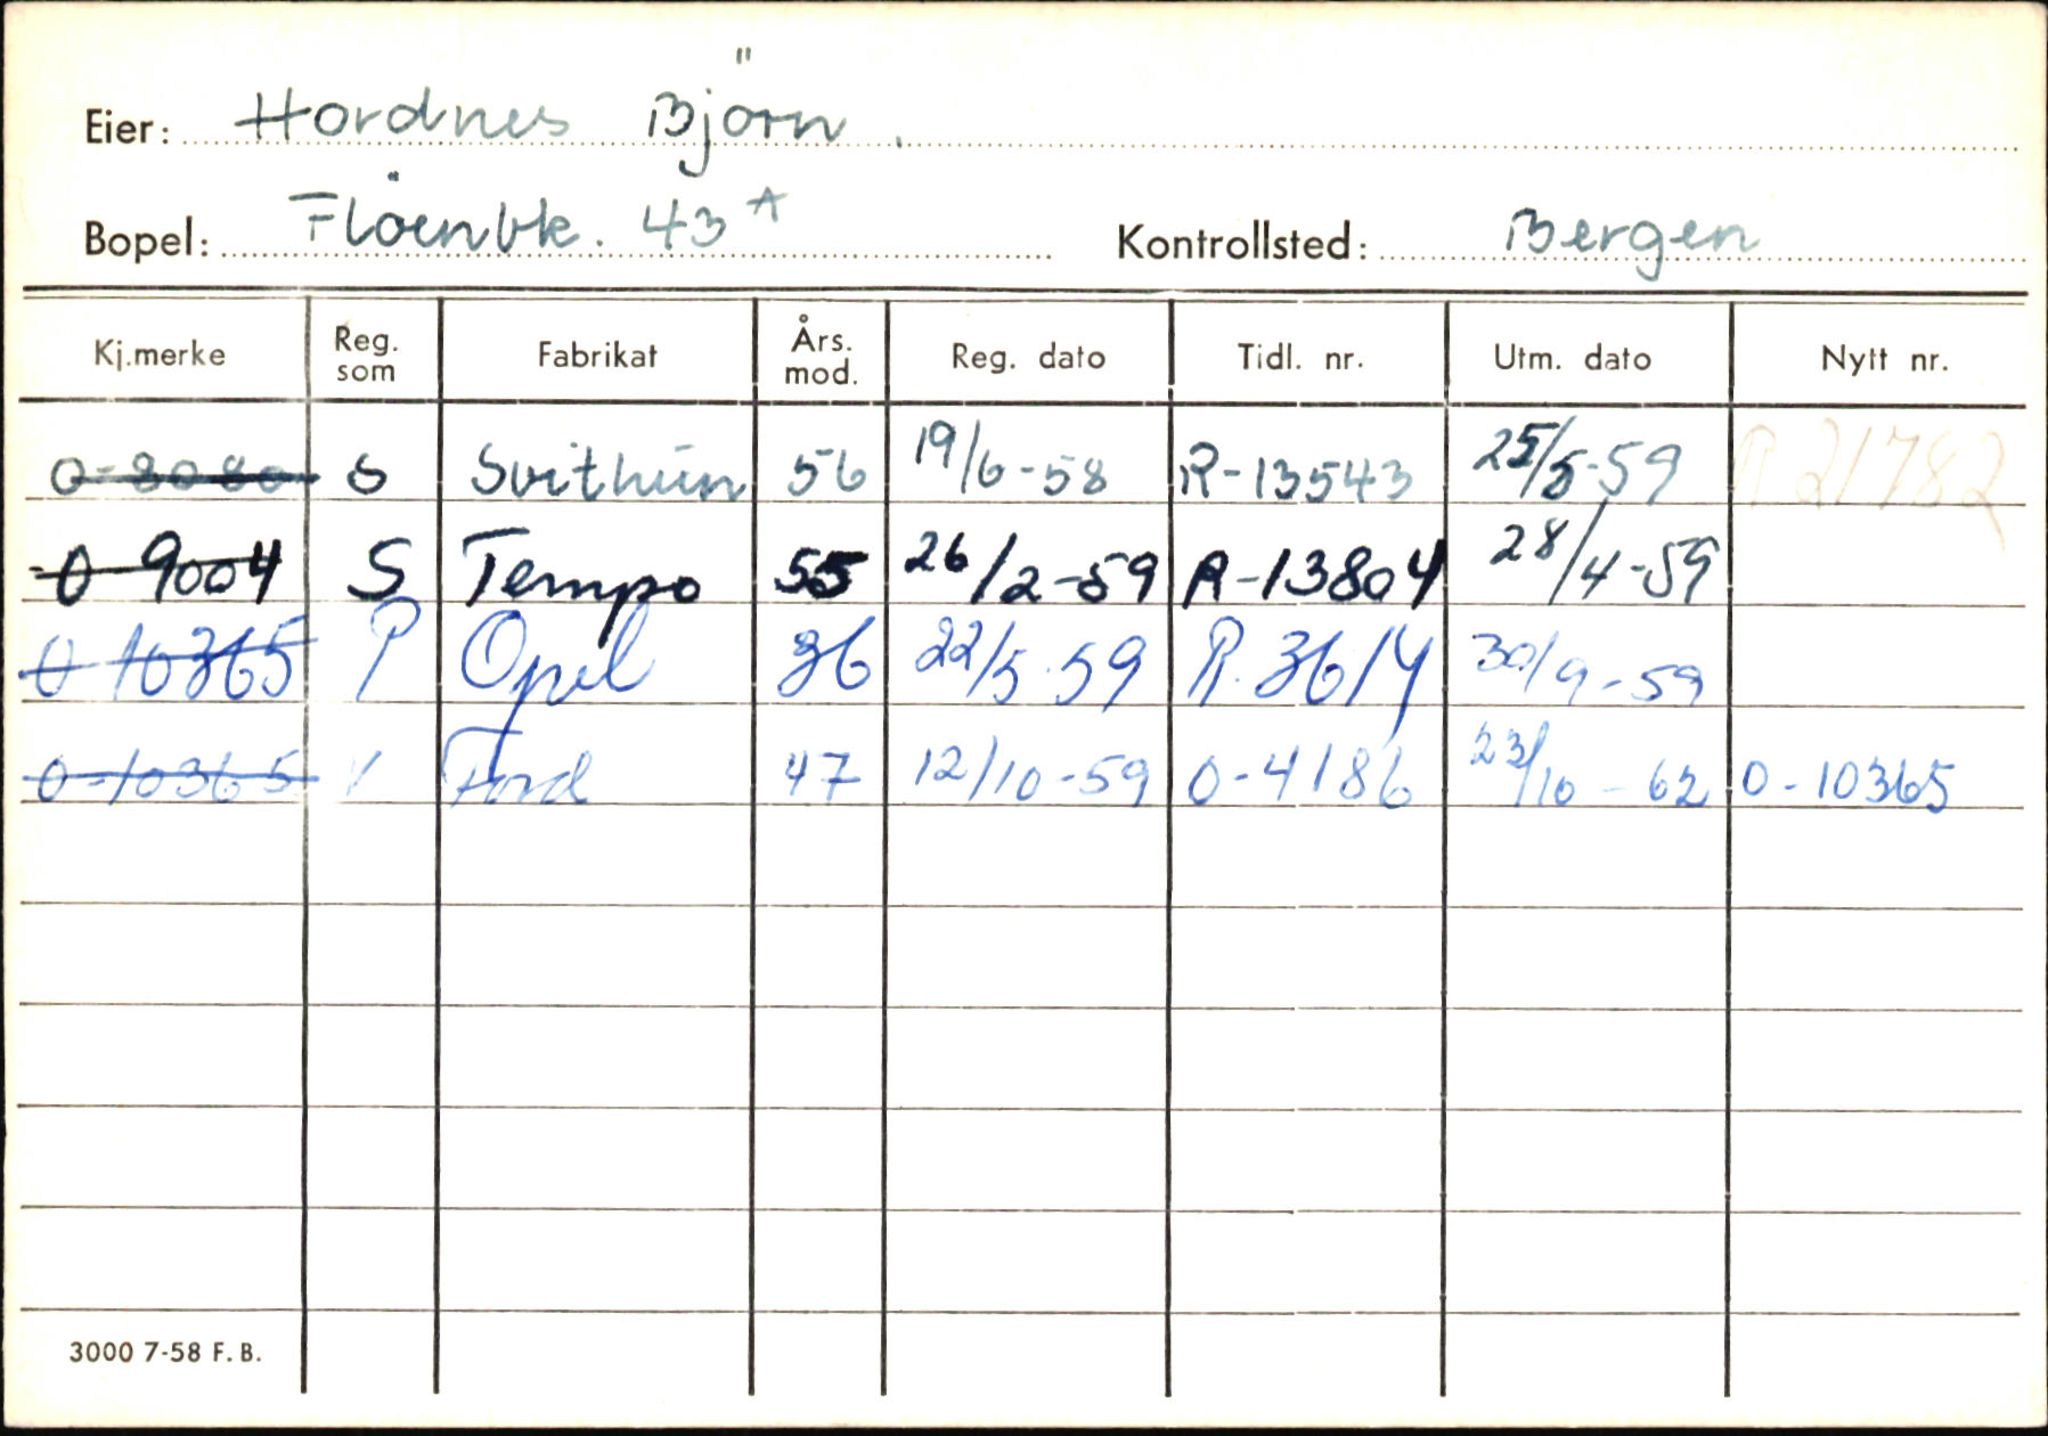 Eier: Hordnes Björn.
Bopel: Flöenbk. 43 A Kontrollsted: Bergen
Kj.merke Reg. som Fabrikat Års. mod. Reg. dato Tidl. nr. Utm. dato Nytt nr.
O-8080 S Svithun 56 19/6-58 R-13543 25/5-59 R 21782
O 9004 S Tempo 55 26/2-59 R-13804 28/4-59
O 10365 P Opel 36 22/5.59 R.3614 30/9-59
O-10365 V Ford 47 12/10-59 O-4186 23/10-62 O-10365
3000 7-58 F. B.